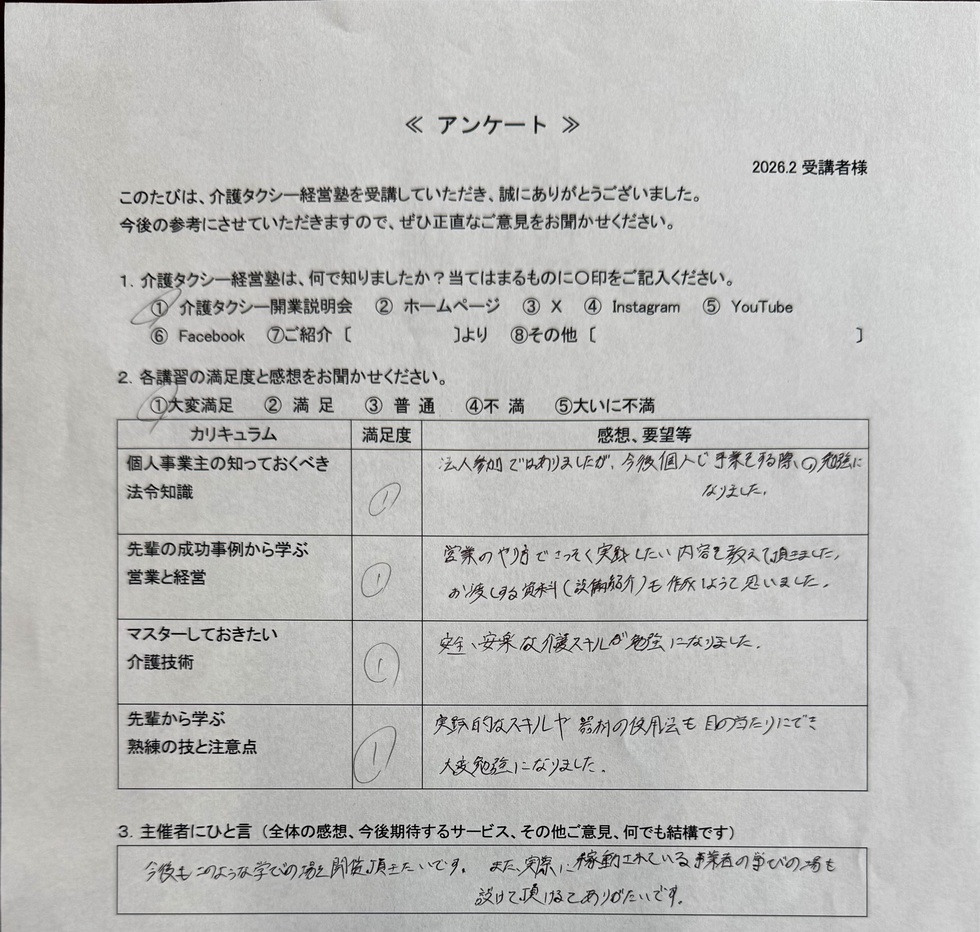 ≪ アンケート ≫
2026.2 受講者様
このたびは、介護タクシー経営塾を受講していただき、誠にありがとうございました。
今後の参考にさせていただきますので、ぜひ正直なご意見をお聞かせください。
1. 介護タクシー経営塾は、何で知りましたか？当てはまるものに〇印をご記入ください。
① 介護タクシー開業説明会 ② ホームページ ③ X ④ Instagram ⑤ YouTube
⑥ Facebook ⑦ご紹介〔 〕より ⑧その他〔 〕
2. 各講習の満足度と感想をお聞かせください。
①大変満足 ② 満 足 ③ 普 通 ④不 満 ⑤大いに不満
カリキュラム 満足度 感想、要望等
個人事業主の知っておくべき
法令知識
①
法人参加ではありましたが、今後個人で事業をする際の勉強に
なりました。
先輩の成功事例から学ぶ
営業と経営
①
営業のやり方でさっそく実践したい内容を教えて頂きました。
お渡しする資料(設備紹介)も作成しようと思いました。
マスターしておきたい
介護技術
①
安全、安楽な介護スキルが勉強になりました。
先輩から学ぶ
熟練の技と注意点
①
実践的なスキルや器材の使用法も目の当たりにでき
大変勉強になりました。
3. 主催者にひと言（全体の感想、今後期待するサービス、その他ご意見、何でも結構です）
今後もこのような学びの場を開催頂きたいです。また、実際に稼動されている事業者の学びの場も
設けて頂けるとありがたいです。